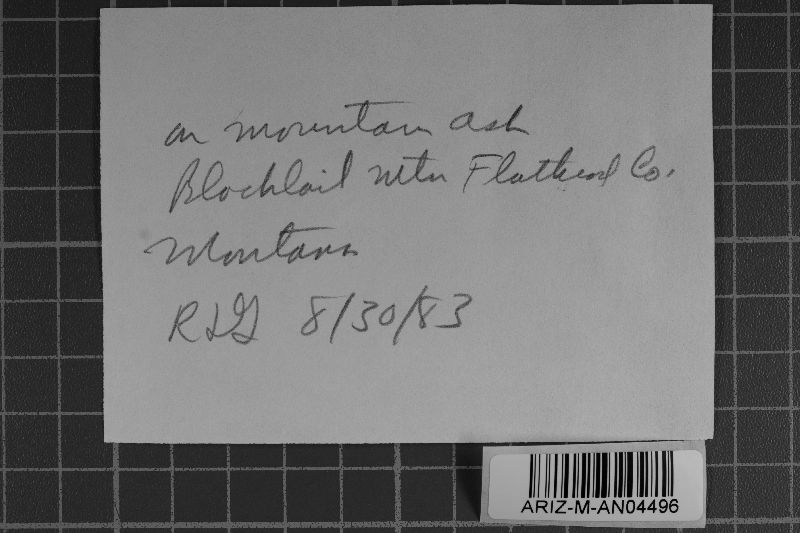 on mountain ash
Blacktail Mtn Flathead Co.
Montana
RLG 8/30/83
ARIZ-M-AN04496